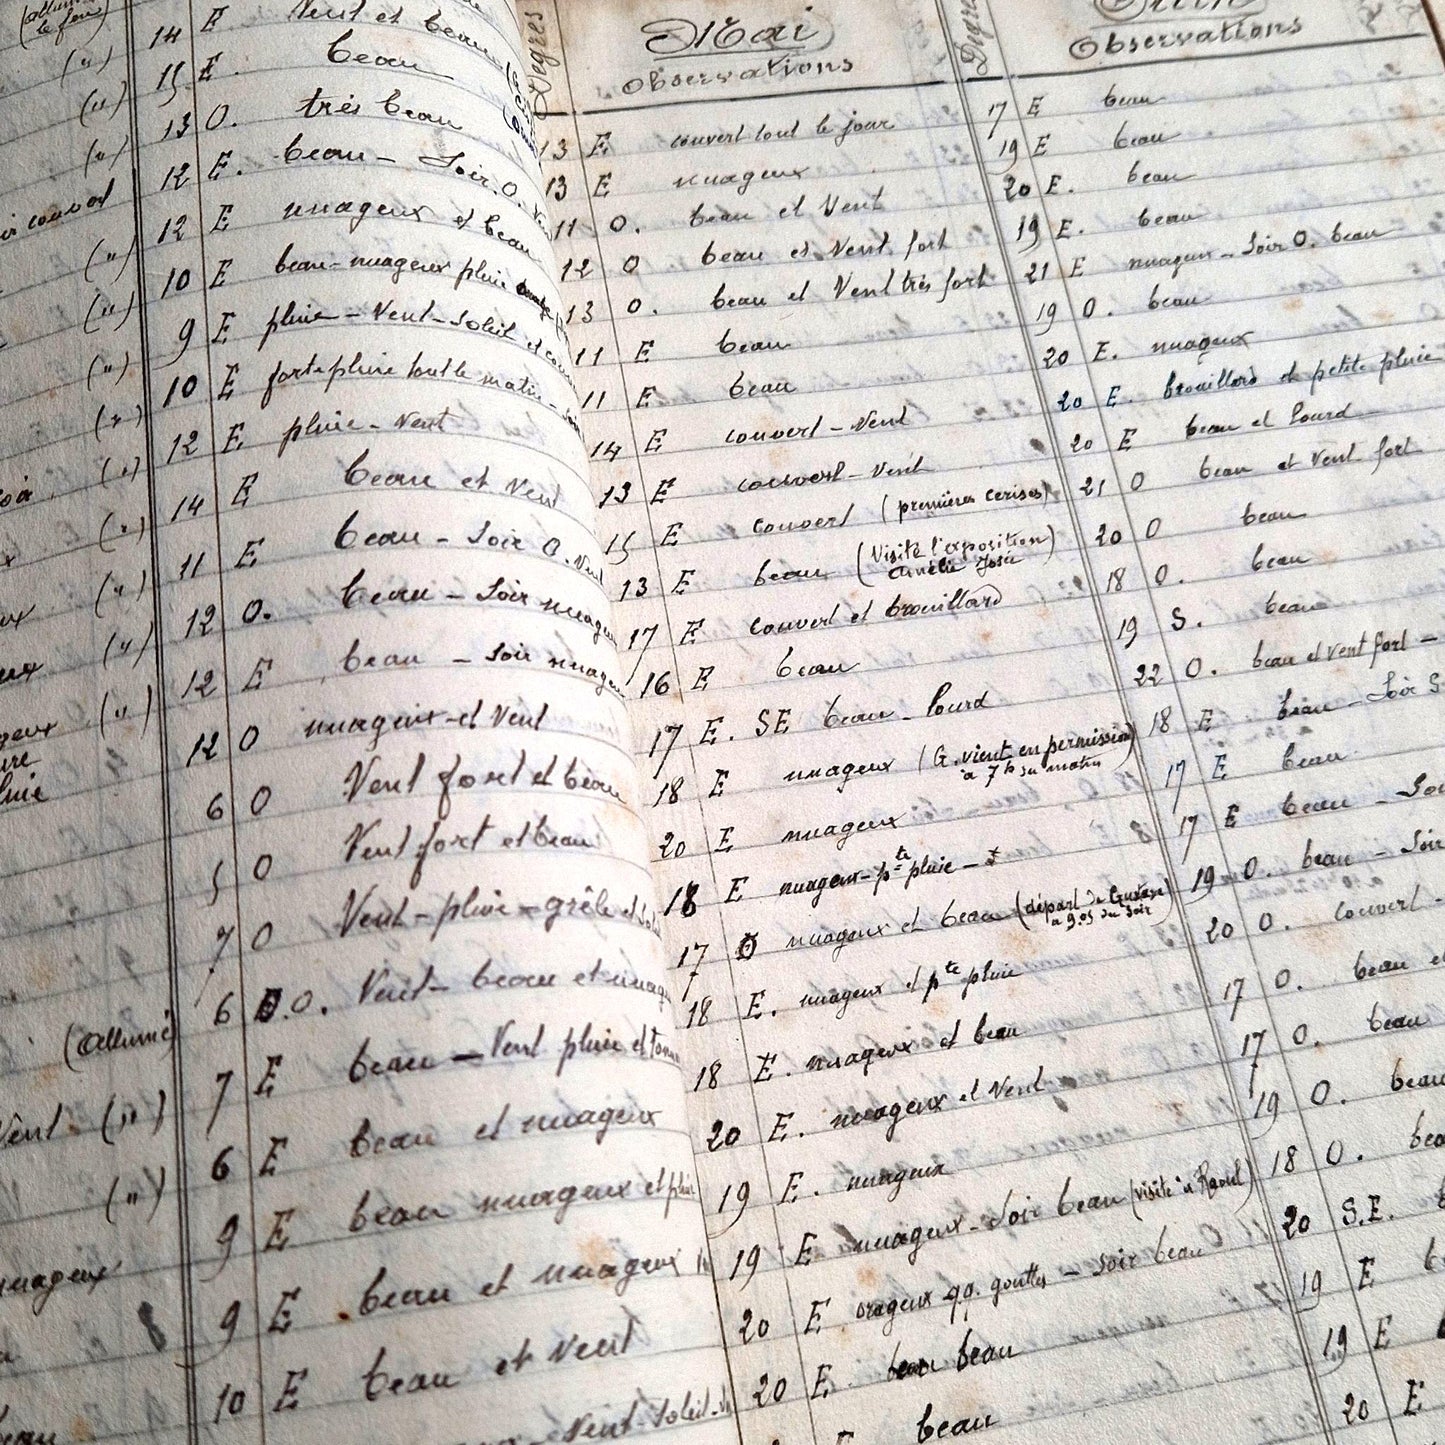 14 E Vent et beau
(") 15 E. beau
(") 13 O. très beau
(") 12 E. beau - Soir. O.
12 E nuageux et beau
(") 10 E beau - nuageux pluie
(") 9 E pluie - Vent - Soleil et
(") 10 E forte pluie tout le matin -
(") 12 E pluie - Vent
(") 14 E beau et Vent
(") 11 E beau - Soir O. Vent
(") 12 O. beau - Soir nuageux
(") 12 E beau - Soir nuageux
(") 12 O nuageux et Vent
6 O Vent fort et beau
5 O Vent fort et beau
7 O Vent - pluie - grêle et
6 O. Vent - beau et nuag
(Allumé) 7 E beau - Vent pluie et
Vent (") 6 E beau et nuageux
(") 9 E beau nuageux et
nuageux 9 E beau et nuageux
10 E beau et Vent
Vent - Soleil -
Degrés
Mai
Observations
13 E couvert tout le jour
13 E nuageux
11 O. beau et Vent
12 O beau et Vent fort
13 O. beau et Vent très fort
11 E beau
11 E beau
14 E couvert - Vent
13 E couvert - Vent
15 E couvert (premières cerises)
13 E beau (Visité l'exposition
Amélie Josée)
17 E couvert et brouillard
16 E beau
17 E. SE beau - lourd
18 E nuageux (G. vient en permission
à 7h du matin)
20 E nuageux
18 E nuageux - pte pluie -
17 O nuageux et beau (départ de Gustave
à 9.05 du soir)
18 E. nuageux et pte pluie
18 E. nuageux et beau
20 E. nuageux et Vent
19 E. nuageux
19 E nuageux - Soir beau (visite à Raoul)
20 E orageux qq. gouttes - Soir beau
20 E beau
E beau
Juin
Observations
17 E beau
19 E beau
20 E. beau
19 E. beau
21 E nuageux - Soir O. beau
19 O. beau
20 E. nuageux
20 E. brouillard et petite pluie
20 E beau et lourd
21 O beau et Vent fort
20 O beau
18 O. beau
19 S. beau
22 O. beau et Vent fort -
18 E beau - Soir S
17 E beau
17 E beau - Soi
19 O. beau - Soir
20 O. couvert -
17 O. beau et
17 O. beau
19 O. beau
18 O. beau
20 S.E.
19 E
19 E
20 E